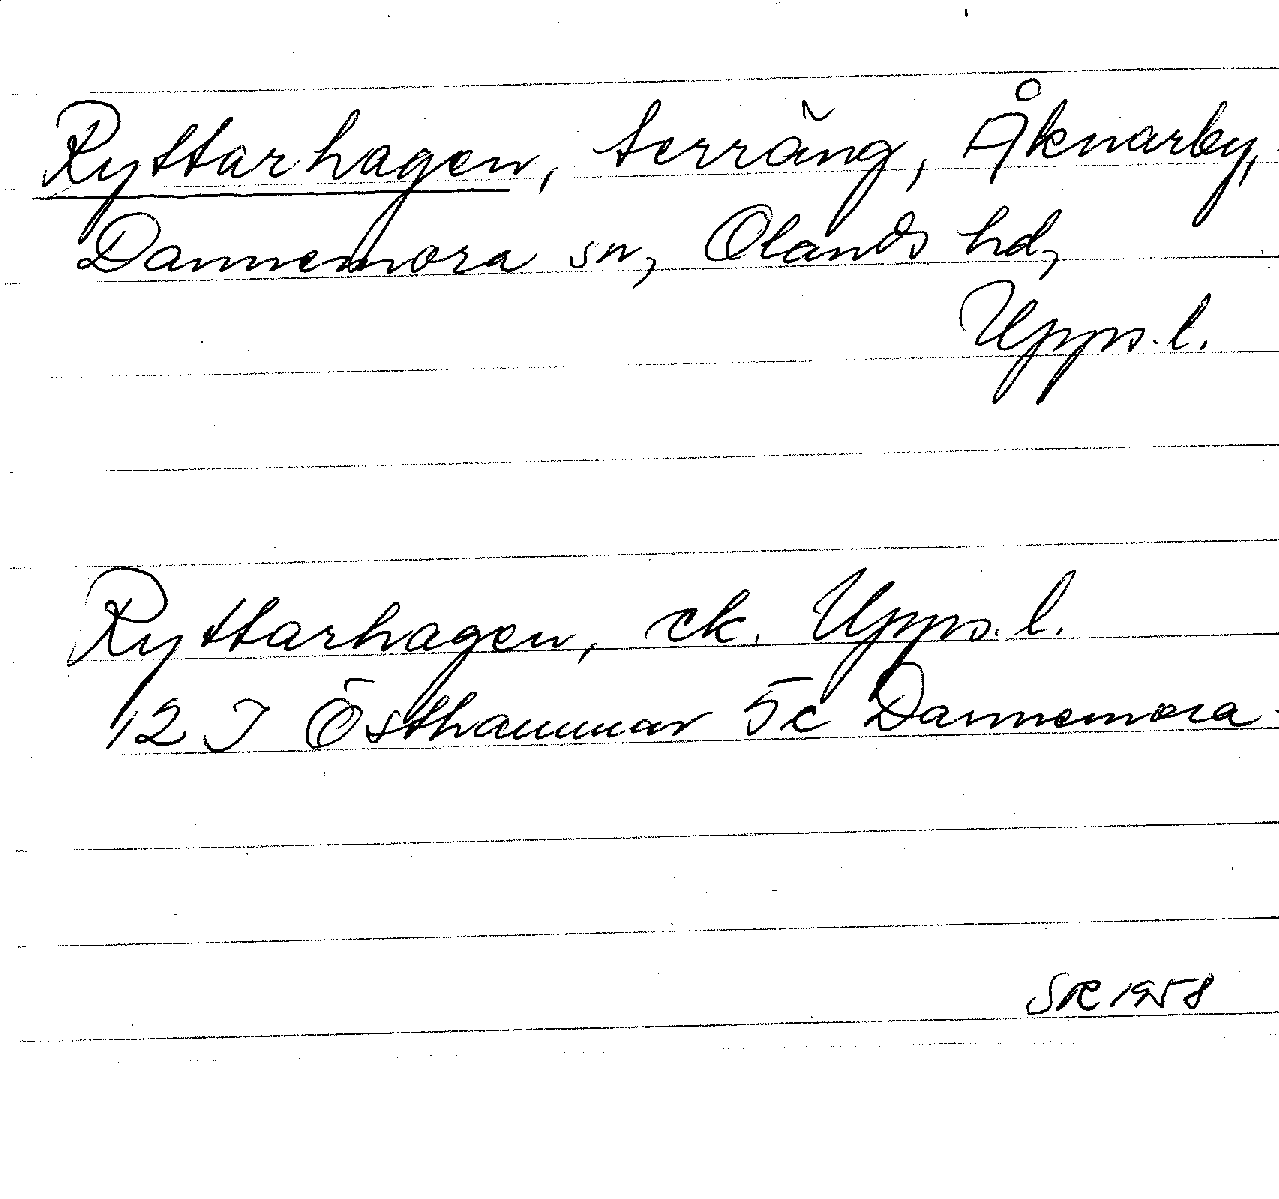 Ryttarhagen, terräng, Åknarby,
Dannemora sn, Olands hd,
Upps. l.
Ryttarhagen, ek. Upps. l.
12 I Östhammar 5c Dannemora
SR 1958